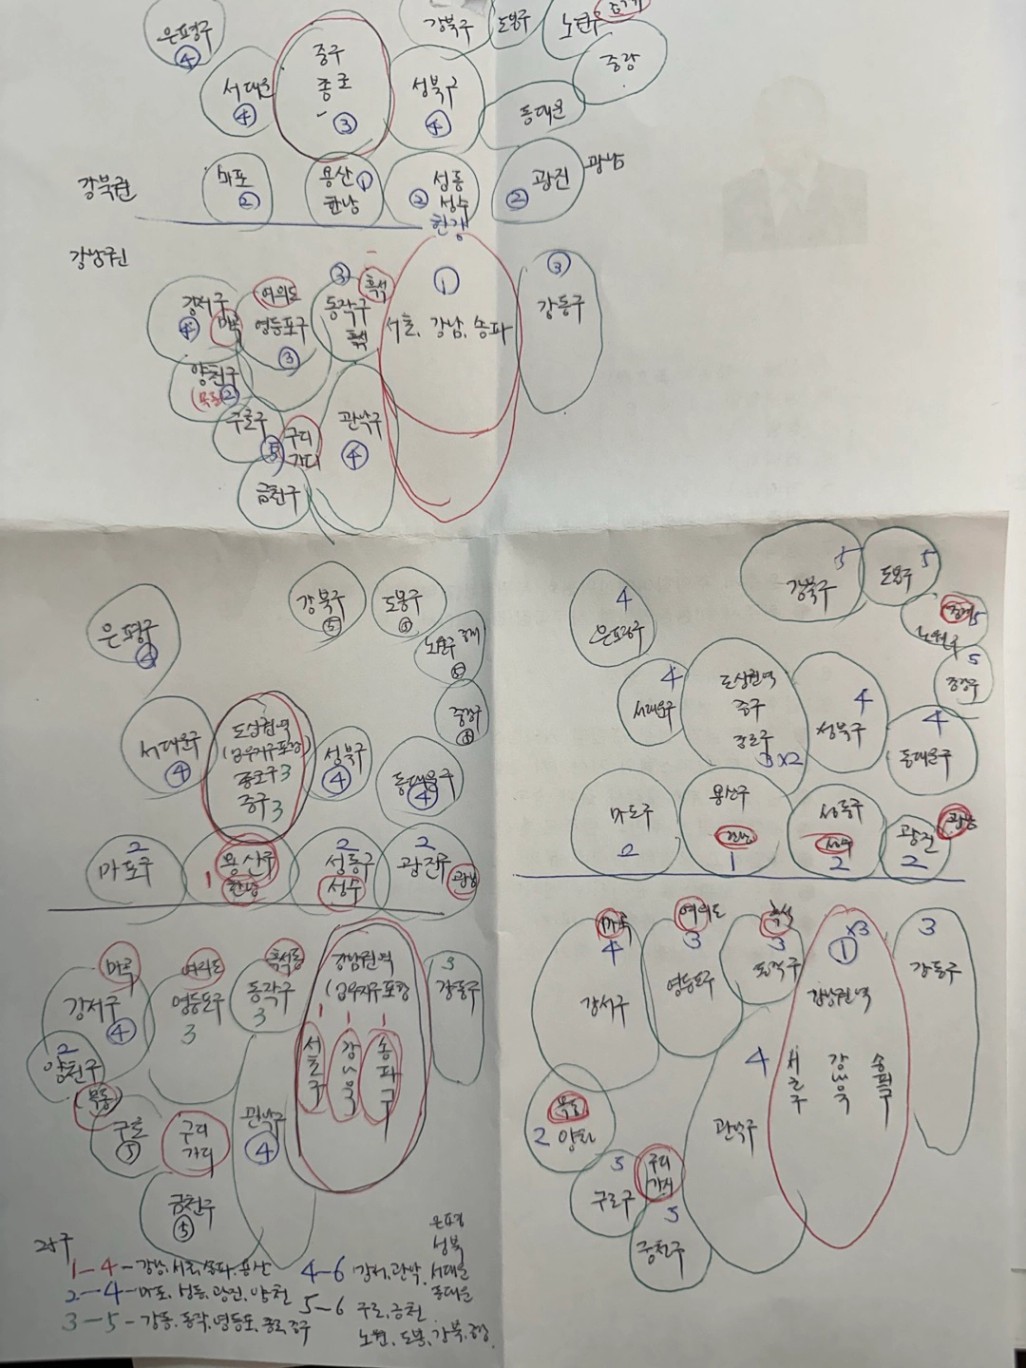 은평구
④
서대문
④
중구
종로
③
강북구
도봉구
노원구
중랑
성북구
④
동대문
강북권
마포
②
용산 ①
한남
성동
② 성수
광진
②
광남
한강
강남권
강서구
④ 마곡
여의도
영등포구
③
③
흑석
동작구
흑석
①
서초, 강남, 송파
③
강동구
양천구
(목동) ②
구로구
⑤
구디
가디
관악구
④
금천구
은평구
④
강북구
⑤
도봉구
⑤
노원구 중계
⑤
중랑구
⑤
서대문구
④
도심권역
종로구 3
중구 3
성북구
④
동대문구
④
2
마포구
1
용산구
한남
2
성동구
성수
2
광진구
광남
마곡
강서구
④
여의도
영등포구
3
흑석동
동작구
3
강남권역
1 1 1
서초구
강남구
송파구
3
강동구
2
양천구
목동
구로
⑤
구디
가디
관악구
④
금천구
⑤
25구
1-4-강남, 서초, 송파, 용산
2-4-마포, 성동, 광진, 양천
3-5-강동, 동작, 영등포, 종로, 중구
4-6 강서, 관악,
은평
성북
서대문
동대문
5-6 구로, 금천
노원, 도봉, 강북, 중랑
4
은평구
5
강북구
도봉구 5
중계 5
노원구
5
중랑구
4
서대문구
도심권역
중구
종로구
3×2
4
성북구
4
동대문구
마포구
2
용산구
한남
1
성동구
성수
2
광진
2
광남
마곡
4
강서구
여의도
3
영등포구
흑석
3
동작구
① ×3
강남권역
서초구
강남구
송파구
3
강동구
목동
2 양천
4
관악구
5
구로구
구디
가디
5
금천구